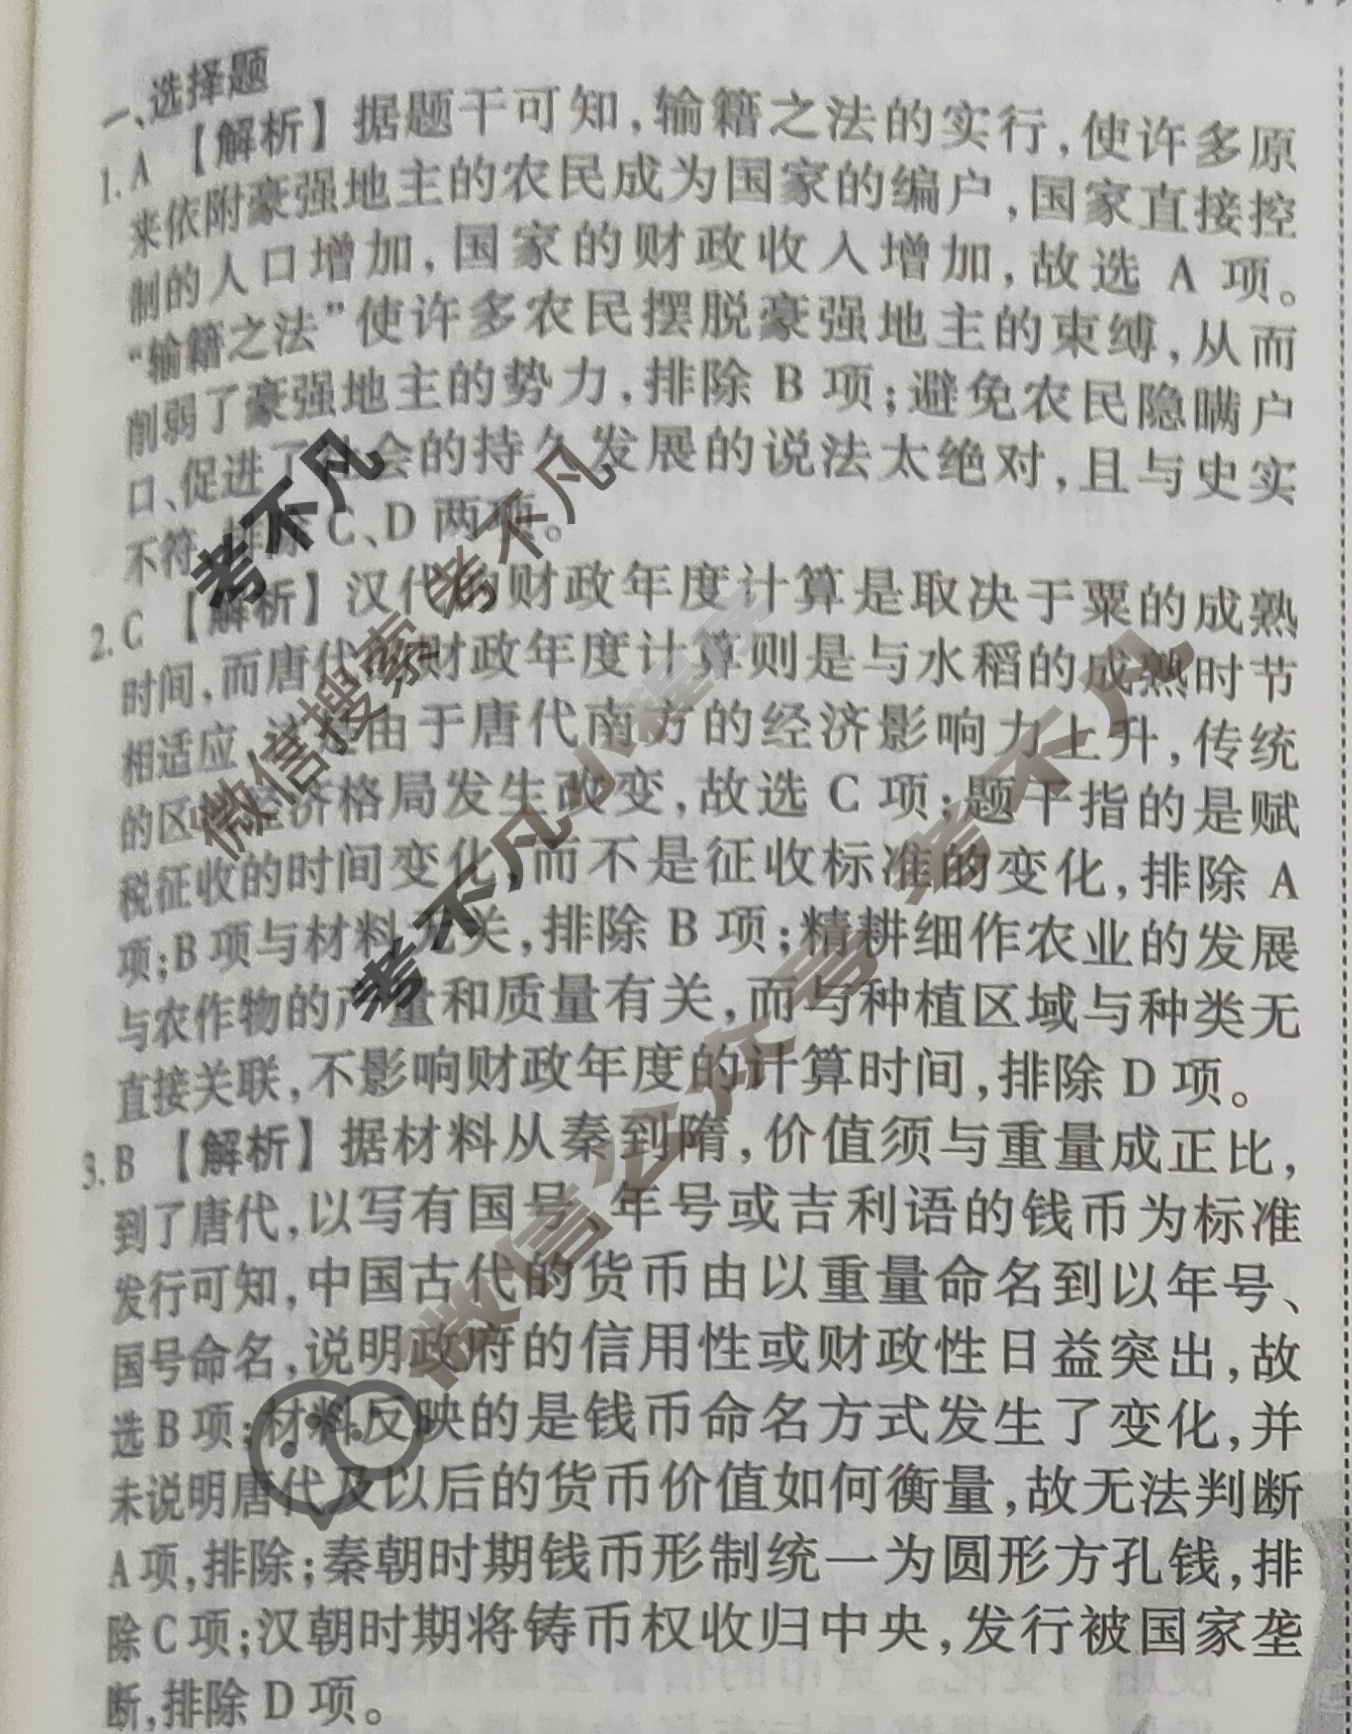 一、选择题
1. A 【解析】据题干可知,输籍之法的实行,使许多原
来依附豪强地主的农民成为国家的编户,国家直接控
制的人口增加,国家的财政收入增加,故选 A 项。
“输籍之法”使许多农民摆脱豪强地主的束缚,从而
削弱了豪强地主的势力,排除 B 项;避免农民隐瞒户
口、促进了社会的持久发展的说法太绝对,且与史实
不符,排除 C、D 两项。
2. C 【解析】汉代的财政年度计算是取决于粟的成熟
时间,而唐代的财政年度计算则是与水稻的成熟时节
相适应,这是由于唐代南方的经济影响力上升,传统
的区域经济格局发生改变,故选 C 项;题干指的是赋
税征收的时间变化,而不是征收标准的变化,排除 A
项;B 项与材料无关,排除 B 项;精耕细作农业的发展
与农作物的产量和质量有关,而与种植区域与种类无
直接关联,不影响财政年度的计算时间,排除 D 项。
3. B 【解析】据材料从秦到隋,价值须与重量成正比,
到了唐代,以写有国号、年号或吉利语的钱币为标准
发行可知,中国古代的货币由以重量命名到以年号、
国号命名,说明政府的信用性或财政性日益突出,故
选 B 项;材料反映的是钱币命名方式发生了变化,并
未说明唐代及以后的货币价值如何衡量,故无法判断
A 项,排除;秦朝时期钱币形制统一为圆形方孔钱,排
除 C 项;汉朝时期将铸币权收归中央,发行被国家垄
断,排除 D 项。
考不凡
微信搜索 考不凡
考不凡小程序
微信公众号 考不凡